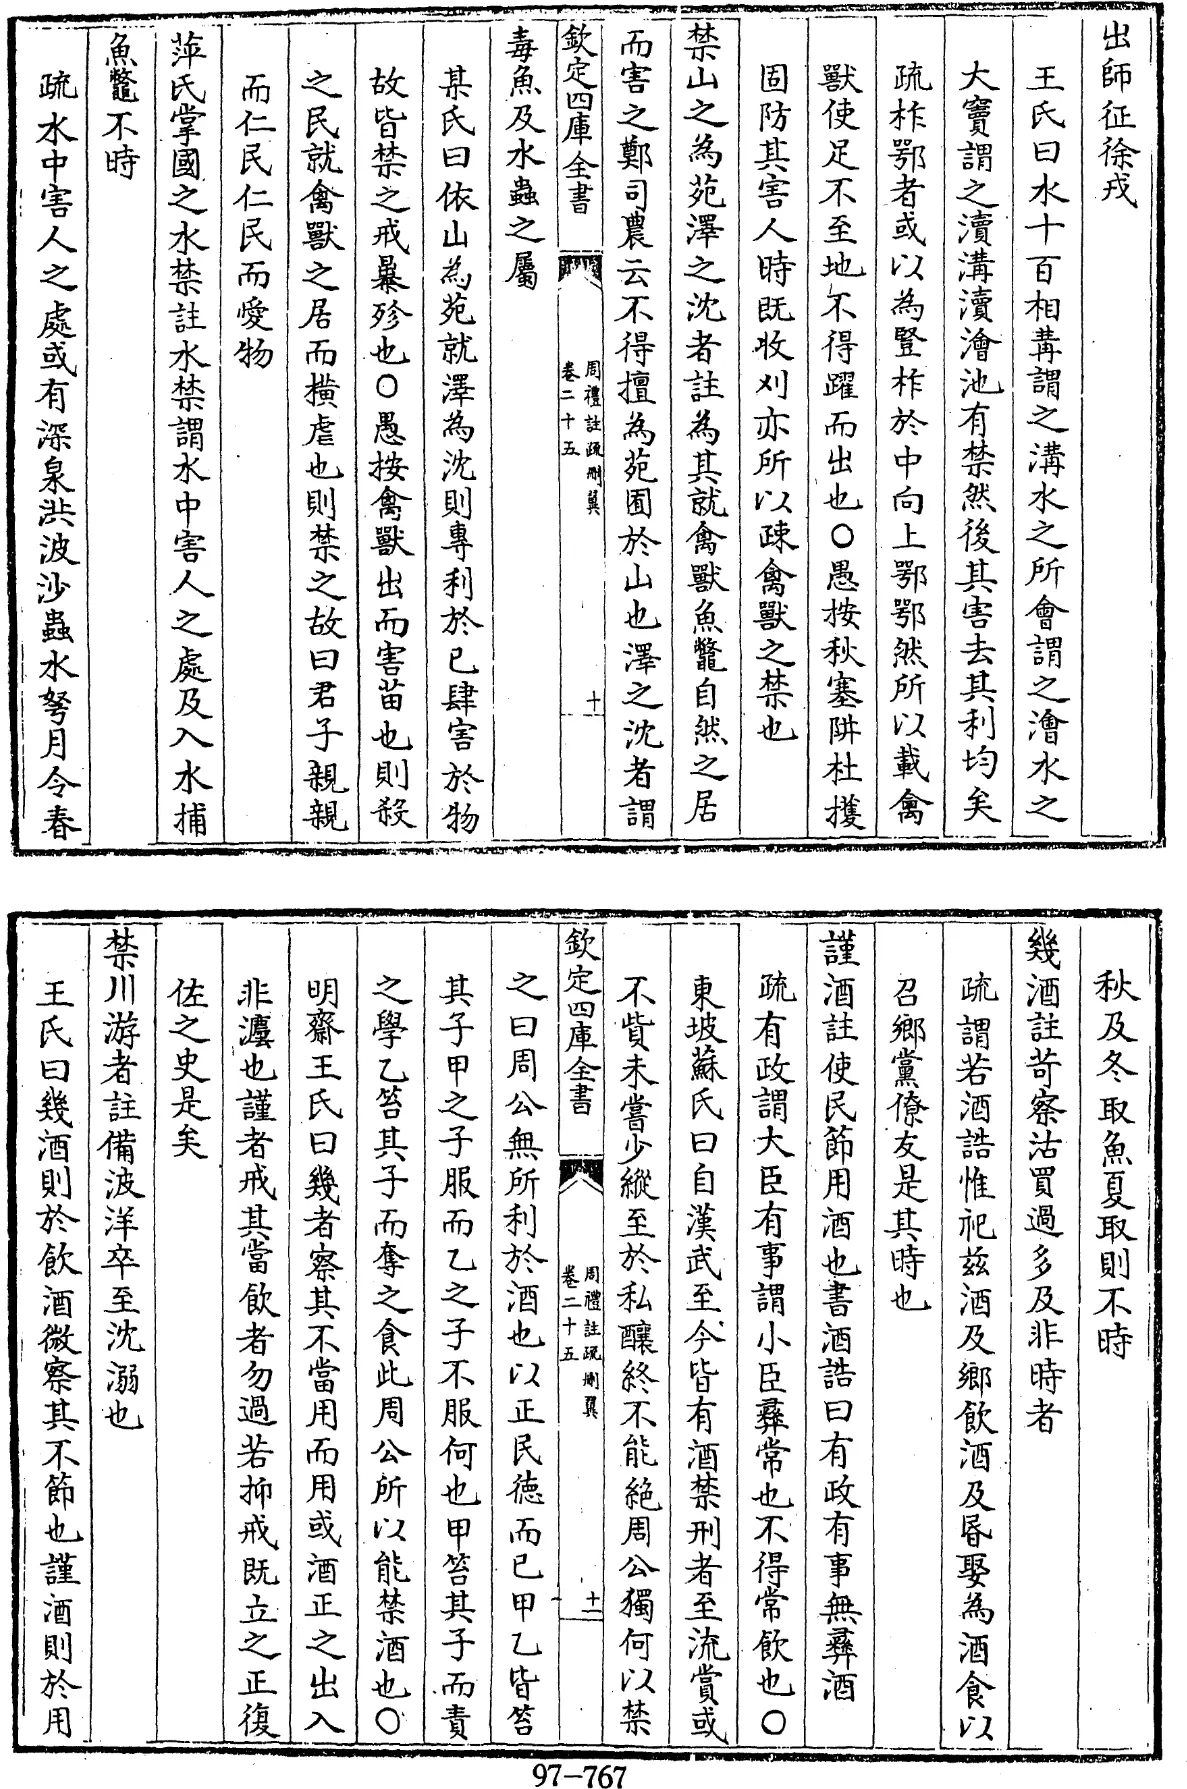 出師征徐戎
王氏曰水十百相冓謂之溝水之所會謂之澮水之
大竇謂之瀆溝瀆澮池有禁然後其害去其利均矣
疏柞鄂者或以為豎柞於中向上鄂鄂然所以載禽
獸使足不至地不得躍而出也○愚按秋塞阱杜擭
固防其害人時既收刈亦所以疎禽獸之禁也
禁山之為苑澤之沈者註為其就禽獸魚鼈自然之居
而害之鄭司農云不得擅為苑囿於山也澤之沈者謂
欽定四庫全書
周禮註疏刪翼
卷二十五
十
毒魚及水蟲之屬
某氏曰依山為苑就澤為沈則專利於已肆害於物
故皆禁之戒暴殄也○愚按禽獸出而害苗也則殺
之民就禽獸之居而橫虐也則禁之故曰君子親親
而仁民仁民而愛物
萍氏掌國之水禁註水禁謂水中害人之處及入水捕
魚鼈不時
疏水中害人之處或有深泉洪波沙蟲水弩月令春
秋及冬取魚夏取則不時
幾酒註苛察沽買過多及非時者
疏謂若酒誥惟祀兹酒及鄉飲酒及昬娶為酒食以
召鄉黨僚友是其時也
謹酒註使民節用酒也書酒誥曰有政有事無彝酒
疏有政謂大臣有事謂小臣彝常也不得常飲也○
東坡蘇氏曰自漢武至今皆有酒禁刑者至流賞或
不貲未嘗少縱至於私釀終不能絶周公獨何以禁
欽定四庫全書
周禮註疏刪翼
卷二十五
十一
之曰周公無所利於酒也以正民德而已甲乙皆笞
其子甲之子服而乙之子不服何也甲笞其子而責
之學乙笞其子而奪之食此周公所以能禁酒也○
明齋王氏曰幾者察其不當用而用或酒正之出入
非灋也謹者戒其當飲者勿過若抑戒既立之正復
佐之史是矣
禁川游者註備波洋卒至沈溺也
王氏曰幾酒則於飲酒微察其不節也謹酒則於用
97-767